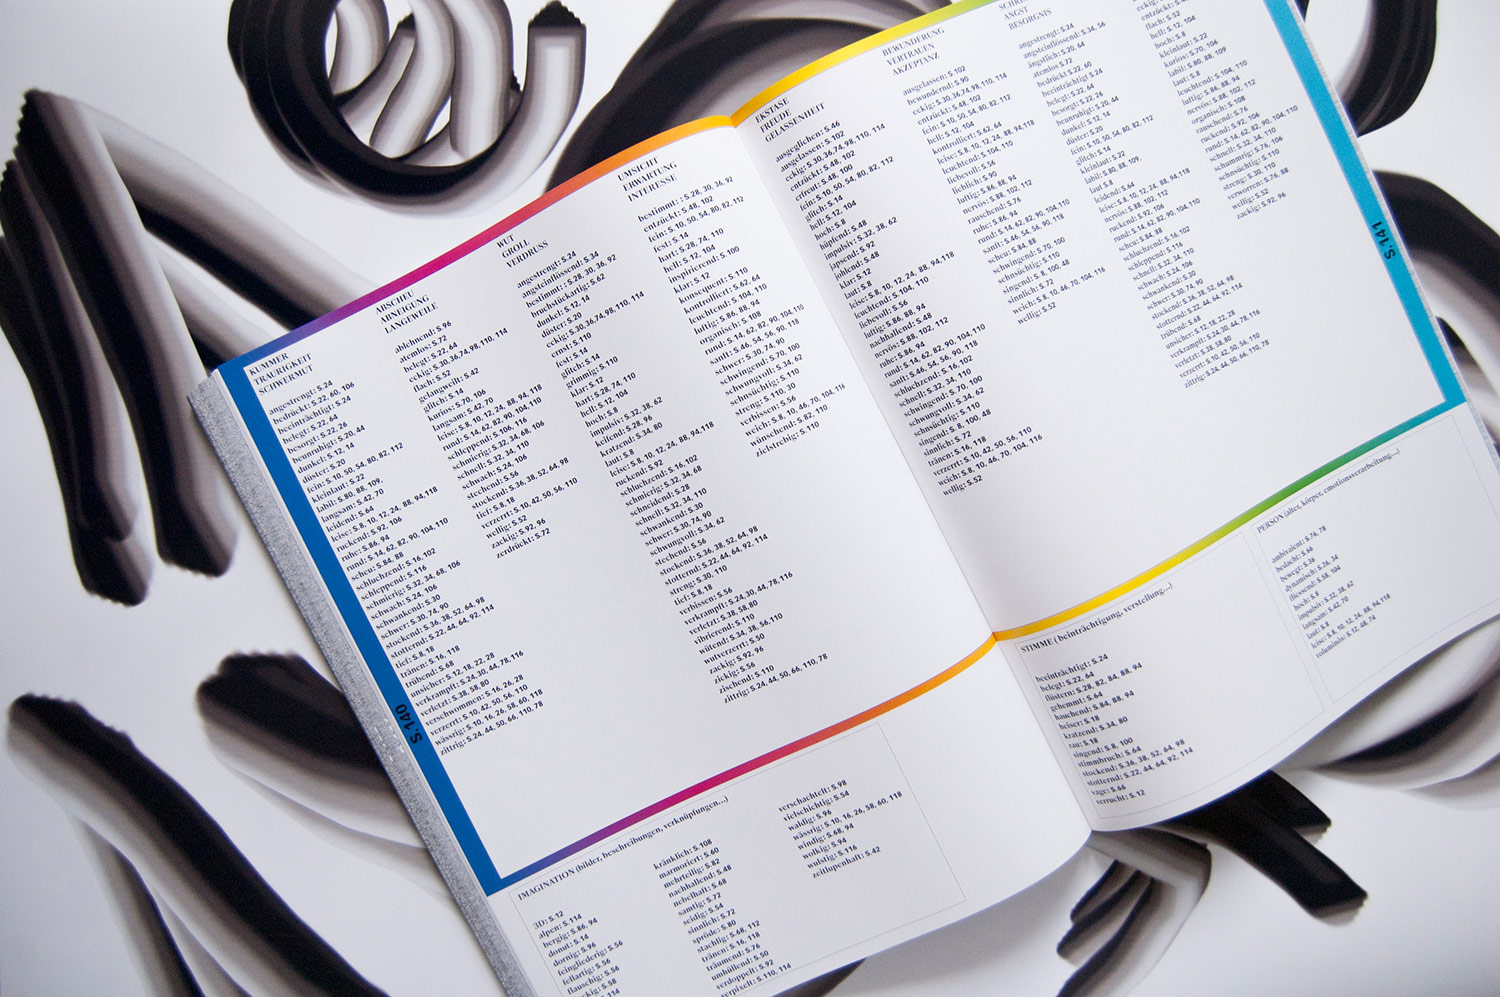 KUMMER
TRAURIGKEIT
SCHWERMUT
angestrengt: S.24
bedrückt: S.22, 60, 106
beeinträchtigt: S.24
belegt: S.22, 64
besorgt: S.22, 26
beunruhigt: S.20, 44
dunkel: S.12, 14
düster: S.20
fein: S.10, 50, 54, 80, 82, 112
kleinlaut: S.22
labil: S.80, 88, 109,
langsam: S.42, 70
leidend: S.64
leise: S.8, 10, 12, 24, 88, 94,118
ruckend: S.92, 106
ruhe: S.86, 94
rund: S.14, 62, 82, 90, 104, 110
scheu: S.84, 88
schluchzend: S.16, 102
schleppend: S.116
schmierig: S.32, 34, 68, 106
schwach: S.24, 106
schwankend: S.30
schwer: S.30, 74, 90
stockend: S.36, 38, 52, 64, 98
stotternd: S.22, 44, 64, 92, 114
tief: S.8, 18
tränen: S.16, 118
trübend: S.68
unsicher: S.12, 18, 22, 28
verkrampft: S.24, 30, 44, 78, 116
verletzt: S.38, 58, 80
verschwommen: S.16, 26, 28
verzerrt: S.10, 42, 50, 56, 110
wässrig: S.10, 16, 26, 58, 60, 118
zittrig: S.24, 44, 50, 66, 110, 78
S.140
ABSCHEU
ABNEIGUNG
LANGEWEILE
ablehnend: S.96
atemlos: S.72
belegt: S.22, 64
eckig: S.30,36,74, 98, 110, 114
flach: S.52
gelangweilt: S.42
glitch: S.14
kurios: S.70, 106
langsam: S.42, 70
leise: S.8, 10, 12, 24, 88, 94, 118
rund: S.14, 62, 82, 90, 104, 110
schleppend: S.106, 116
schmierig: S.32, 34, 68, 106
schnell: S.32, 34, 110
schwach: S.24, 106
stechend: S.56
stockend: S.36, 38, 52, 64, 98
tief: S.8, 18
verzerrt: S.10, 42, 50, 56, 110
wellig: S.52
zackig: S.92, 96
zerdrückt: S.72
WUT
GROLL
VERDRUSS
angestrengt: S.24
angsteinflössend: S.34
bestimmt: : S.28, 30, 36, 92
bruchstückartig: S.62
dunkel: S.12, 14
düster: S.20
eckig: S.30,36,74, 98, 110, 114
ernst: S.110
fest: S.14
glitch: S.14
grimmig: S.110
klar: S.12
hart: S.28, 74, 110
hell: S.12, 104
hoch: S.8
impulsiv: S.32, 38, 62
keifend: S.28, 96
kratzend: S.34, 80
laut: S.8
leise: S.8, 10, 12, 24, 88, 94, 118
ruckend: S.92
schluchzend: S.16, 102
schmierig: S.32, 34, 68
schneidend: S.28
schnell: S.32, 34, 110
schwankend: S.30
schwer: S.30, 74, 90
schwungvoll: S.34, 62
stechend: S.56
stockend: S.36, 38, 52, 64, 98
stotternd: S.22, 44, 64, 92, 114
streng: S.30, 110
tief: S.8, 18
verbissen: S.56
verkrampft: S.24, 30, 44, 78, 116
verletzt: S.38, 58, 80
vibrierend: S.110
wütend: S.34, 38, 56, 110
wutverzerrt: S.50
zackig: S.92, 96
zickig: S.56
zischend: S.110
zittrig: S.24, 44, 50, 66, 110, 78
UMSICHT
ERWARTUNG
INTERESSE
bestimmt: : S.28, 30, 36, 92
entzückt: S.48, 102
fein: S.10, 50, 54, 80, 82, 112
fest: S.14
hart: S.28, 74, 110
hell: S.12, 104
inspirierend: S.100
klar: S.12
konsequent: S.110
kontrolliert: S.62, 64
leuchtend: S.104, 110
luftig: S.86, 88, 94
organisch: S.108
rund: S.14, 62, 82, 90, 104, 110
sanft: S.46, 54, 56, 90, 118
schwer: S.30, 74, 90
schwingend: S.70, 100
schwungvoll: S.34, 62
sehnsüchtig: S.110
streng: S.110, 30
verbissen: S.56
weich: S.8, 10, 46, 70, 104, 116
wünschend: S.82, 110
zielstrebig: S.110
EKSTASE
FREUDE
GELASSENHEIT
ausgeglichen: S.46
ausgelassen: S.102
eckig: S.30,36,74, 98, 110, 114
entzückt: S.48, 102
erfreut: S.48, 100
fein: S.10, 50, 54, 80, 82, 112
glitch: S.14
hell: S.12, 104
hoch: S.8
hüpfend: S.48
impulsiv: S.32, 38, 62
japsend: S.92
johlend: S.48
klar: S.12
laut: S.8
leise: S.8, 10, 12, 24, 88, 94,118
leuchtend: S.104, 110
liebevoll: S.56
luftig: S.86, 88, 94
nachhallend: S.48
nervös: S.88, 102, 112
ruhe: S.86, 94
rund: S.14, 62, 82, 90, 104, 110
sanft: S.46, 54, 56, 90, 118
schluchzend: S.16, 102
schnell: S.32, 34, 110
schwingend: S.70, 100
schwungvoll: S.34, 62
sehnsüchtig: S.110
singend: S.8, 100, 48
sinnlich: S.72
tränen: S.16, 118
verzerrt: S.10, 42, 50, 56, 110
weich: S.8, 10, 46, 70, 104, 116
wellig: S.52
BEWUNDERUNG
VERTRAUEN
AKZEPTANZ
ausgelassen: S.102
bewundernd: S.90
eckig: S.30,36,74, 98, 110, 114
entzückt: S.48, 102
fein: S.10, 50, 54, 80, 82, 112
hell: S.12, 104
kontrolliert: S.62, 64
leise: S.8, 10, 12, 24, 88, 94,118
leuchtend: S.104, 110
liebevoll: S.56
lieblich: S.90
luftig: S.86, 88, 94
nervös: S.88, 102, 112
rauschend: S.76
ruhe: S.86, 94
rund: S.14, 62, 82, 90, 104, 110
sanft: S.46, 54, 56, 90, 118
scheu: S.84, 88
schwingend: S.70, 100
sehnsüchtig: S.110
singend: S.8, 100, 48
sinnlich: S.72
weich: S.8, 10, 46, 70, 104, 116
wellig: S.52
ANGST
BESORGNIS
angestrengt: S.24
angsteinflössend: S.34, 56
ängstlich: S.20, 64
atemlos: S.72
bedrückt: S.22, 60
beeinträchtigt: S.24
belegt: S.22, 64
besorgt: S.22, 26
beunruhigt: S.20, 44
dunkel: S.12, 14
düster: S.20
fein: S.10, 50, 54, 80, 82, 112
glitch: S.14
kleinlaut: S.22
labil: S.80, 88, 109,
laut: S.8
leidend: S.64
leise: S.8, 10, 12, 24, 88, 94,118
nervös: S.88, 102, 112
ruckend: S.92, 106
rund: S.14, 62, 82, 90, 104, 110
scheu: S.84, 88
schluchzend: S.16, 102
schleppend: S.116
schnell: S.32, 34, 110
schwach: S.24, 106
schwankend: S.30
schwer: S.30, 74, 90
stockend: S.36, 38, 52, 64, 98
stotternd: S.22, 44, 64, 92, 114
trübend: S.68
unsicher: S.12, 18, 22, 28
verkrampft: S.24, 30, 44, 78, 116
verletzt: S.38, 58, 80
verzerrt: S.10, 42, 50, 56, 110
zittrig: S.24, 44, 50, 66, 110, 78
flach: S.52
hell: S.12, 104
hoch: S.8
kleinlaut: S.22
kurios: S.70, 106
labil: S.80, 88, 109
leuchtend: S.104, 110
luftig: S.86, 88, 94
nervös: S.88, 102, 112
organisch: S.108
rauschend: S.76
ruckend: S.92, 106
rund: S.14, 62, 82, 90, 104, 110
schnell: S.32, 34, 110
schummrig: S.76, 106
sehnsüchtig: S.110
streng: S.30, 110
verworren: S.76, 88
wellig: S.52
zackig: S.92, 96
S.141
IMAGINATION (bilder, beschreibungen, verknüpfungen...)
3D: S.12
alpen: S.114
bergig: S.86, 94
donut: S.14
dornig: S.96
feingliederig: S.56
fellartig: S.56
flauschig: S.56
kränklich: S.108
marmoriert: S.60
mehrteilig: S.82
nachhallend: S.48
nebelhaft: S.68
samtig: S.72
seidig: S.54
sinnlich: S.72
spröde: S.80
stachlig: S.68, 112
tränen: S.16, 118
träumend: S.76
umhüllend: S.50
verdoppelt: S.92
verpixelt: S.110, 114
verschachtelt: S.98
vielschichtig: S.54
waldig: S.96
wässrig: S.10, 16, 26, 58, 60, 118
windig: S.68, 94
wolkig: S.94
wulstig: S.116
zeitlupenhaft: S.42
STIMME (beinträchtigung, verstellung...)
beeinträchtigt: S.24
belegt: S.22, 64
flüstern: S.28, 82, 84, 88, 94
gehemmt: S.64
hauchend: S.84, 88, 94
heiser: S.18
kratzend: S.34, 80
rau: S.18
singend: S.8, 100
stimmbruch: S.64
stockend: S.36, 38, 52, 64, 98
stotternd: S.22, 44, 64, 92, 114
vage: S.66
verraucht: S.12
PERSON (alter, körper, emotionsverarbeitung...)
ambivalent: S.76, 78
bedacht: S.66
bewegt: S.36
dynamisch: S.26, 34
fliessend: S.58, 104
hoch: S.8
impulsiv: S.32, 38, 62
langsam: S.42, 70
laut: S.8
leise: S.8, 10, 12, 24, 88, 94,118
voluminös: S.12, 48, 74